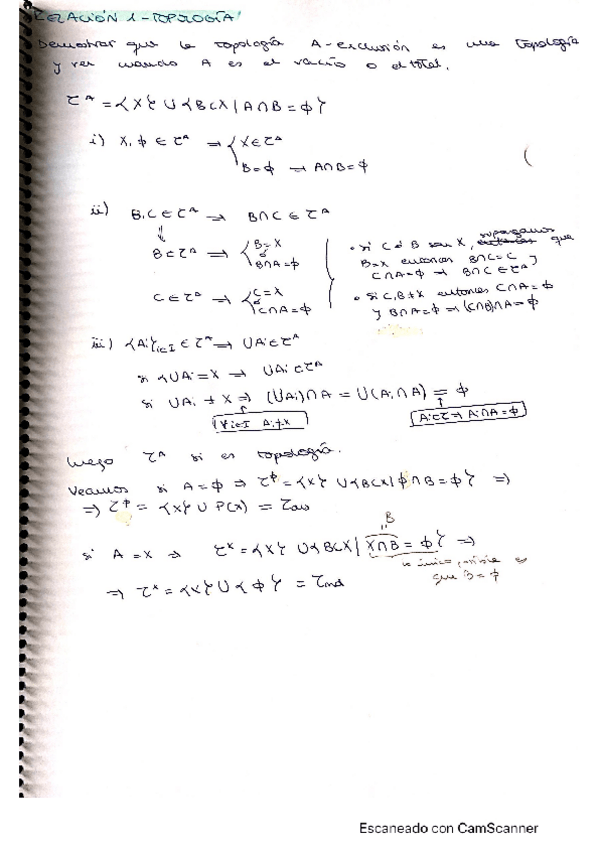 RELACIÓN 1 - TOPOLOGÍA
Demostrar que la topología A-exclusión es una topología
y ver cuando A es el vacío o el total.
τᴬ = {X} ∪ {B⊂X | A∩B = ϕ}
i) X, ϕ ∈ τᴬ ⇒ { X∈τᴬ
B=ϕ → A∩B=ϕ
ii) B,C ∈ τᴬ → B∩C ∈ τᴬ
⇓
B∈τᴬ → { B=X ó B∩A=ϕ
C∈τᴬ → { C=X ó C∩A=ϕ
• si C ó B son X, supongamos que
B=X entonces B∩C=C y
C∩A=ϕ → B∩C ∈ τᴬ
• Si C,B≠X entonces C∩A=ϕ
y B∩A=ϕ ⇒ (C∩B)∩A=ϕ
iii) {Ai}i∈I ∈ τᴬ → ∪Ai∈τᴬ
si ∪Ai = X → ∪Ai ∈τᴬ
si ∪Ai ≠ X ⇒ (∪Ai)∩A = ∪(Ai∩A) = ϕ
∀i∈I Ai≠X
Ai∈τ ⇒ Ai∩A=ϕ
Luego τᴬ si es topología.
Veamos si A=ϕ ⇒ τ^ϕ = {X} ∪ {B⊂X | ϕ∩B = ϕ} ⇒
⇒ τ^ϕ = {X} ∪ P(X) = τdis
B
si A = X ⇒ τˣ = {X} ∪ {B⊂X | X∩B = ϕ} ⇒
único posible es
que B = ϕ
⇒ τˣ = {X} ∪ {ϕ} = τind
Escaneado con CamScanner